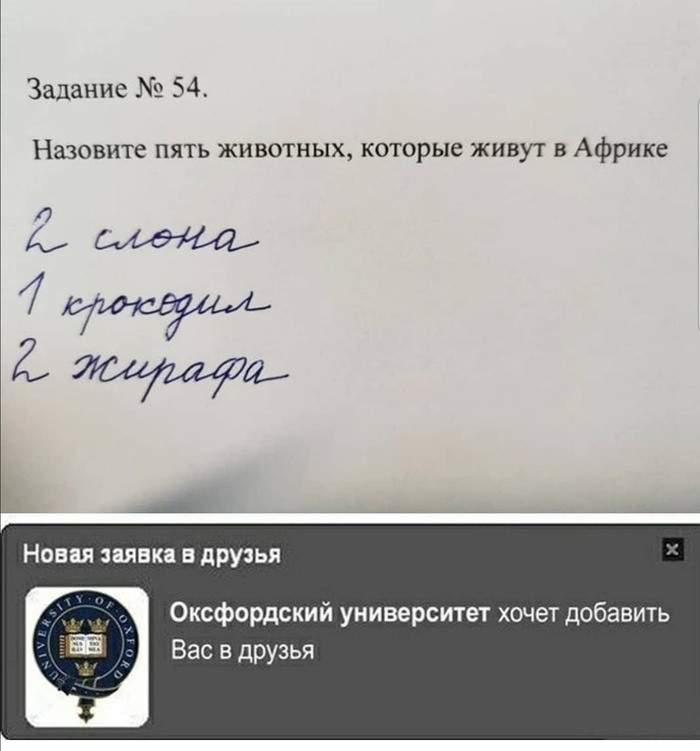 Задание № 54.
Назовите пять животных, которые живут в Африке
2 слона
1 крокодил
2 жирафа
Новая заявка в друзья
UNIVERSITY·OF·OXFORD
DOMI MINA
NUS TIO
ILLU MEA
Оксфордский университет хочет добавить
Вас в друзья